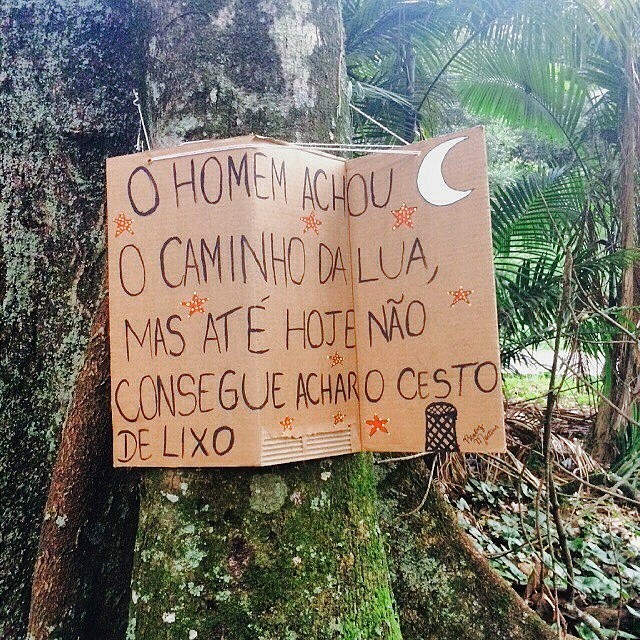 O HOMEM ACHOU
O CAMINHO DA LUA,
MAS ATÉ HOJE NÃO
CONSEGUE ACHAR O CESTO
DE LIXO